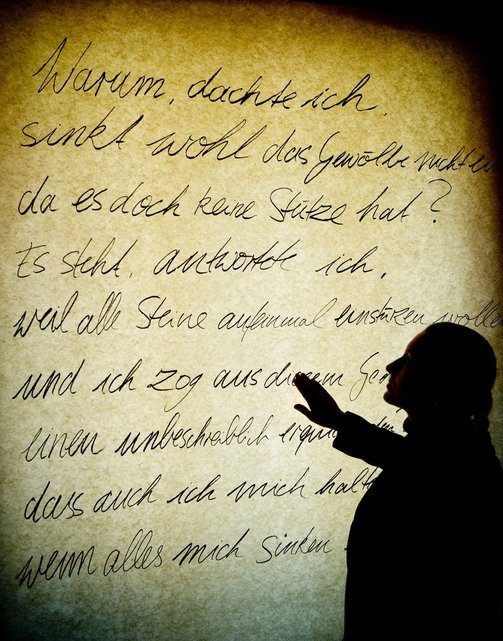 Warum, dachte ich,
sinkt wohl das Gewölbe nicht ein
da es doch keine Stütze hat?
Es steht, antwortete ich,
weil alle Steine aufeinmal einstürzen wollen
und ich zog aus diesem
einen unbeschreiblich
dass auch ich mich halt
wenn alles mich sinken